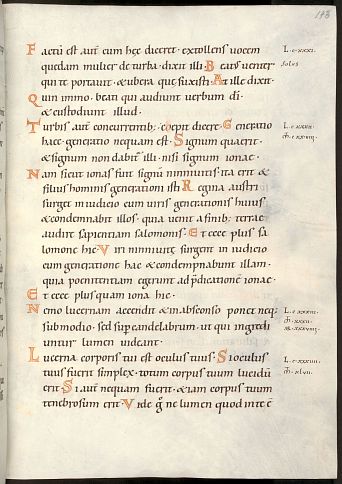 148
Factū est aut̄ cum hęc diceret · extollens uocem
quedam mulier de turba · dixit illi · Beatus uenter
qui te portauit · & ubera quę suxisti · At ille dixit ·
Quin immo · beati qui audiunt uerbum dī ·
& custodiunt illud ·
Turbis aut̄ concurrentib; · coepit dicere · Generatio
haec generatio nequam est · Signum quaerit ·
& signum non dabit̄ illi · nisi signum ionae ·
Nam sicut ionas fuit signū niniuitis · ita erit &
filius hominis generationi isti · Regina austri
surget in iudicio cum uiris generationis huius
& condemnabit illos · quia uenit a finib; terrae
audire sapientiam salomonis · Et ecce plus sa
lomone hic · Viri niniuitę surgent in iudicio
cum generatione hac & condempnabunt illam ·
quia poenitentiam egerunt ad p̄dicationē ionae ·
Et ecce plus quam iona hic ·
Nemo lucernam accendit & in abscônso ponet neq;
sub modio · sed supra candelabrum · ut qui ingredi
untur lumen uideant ·
Lucerna corporis tui est oculus tuus · Si oculus
tuus fuerit simplex · totum corpus tuum lucidū
erit · Si aut̄ nequam fuerit · & iam corpus tuum
tenebrosum erit · Vide ḡ ne lumen quod in te ē
L. cxxxi.
solus